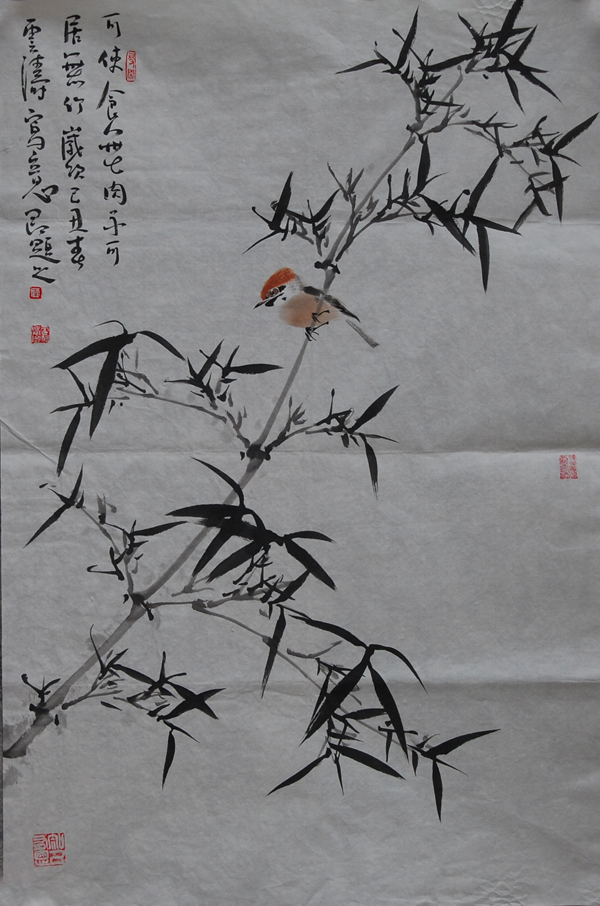 可使食無肉不可
居無竹歲次己丑春
雲濤寫意題之